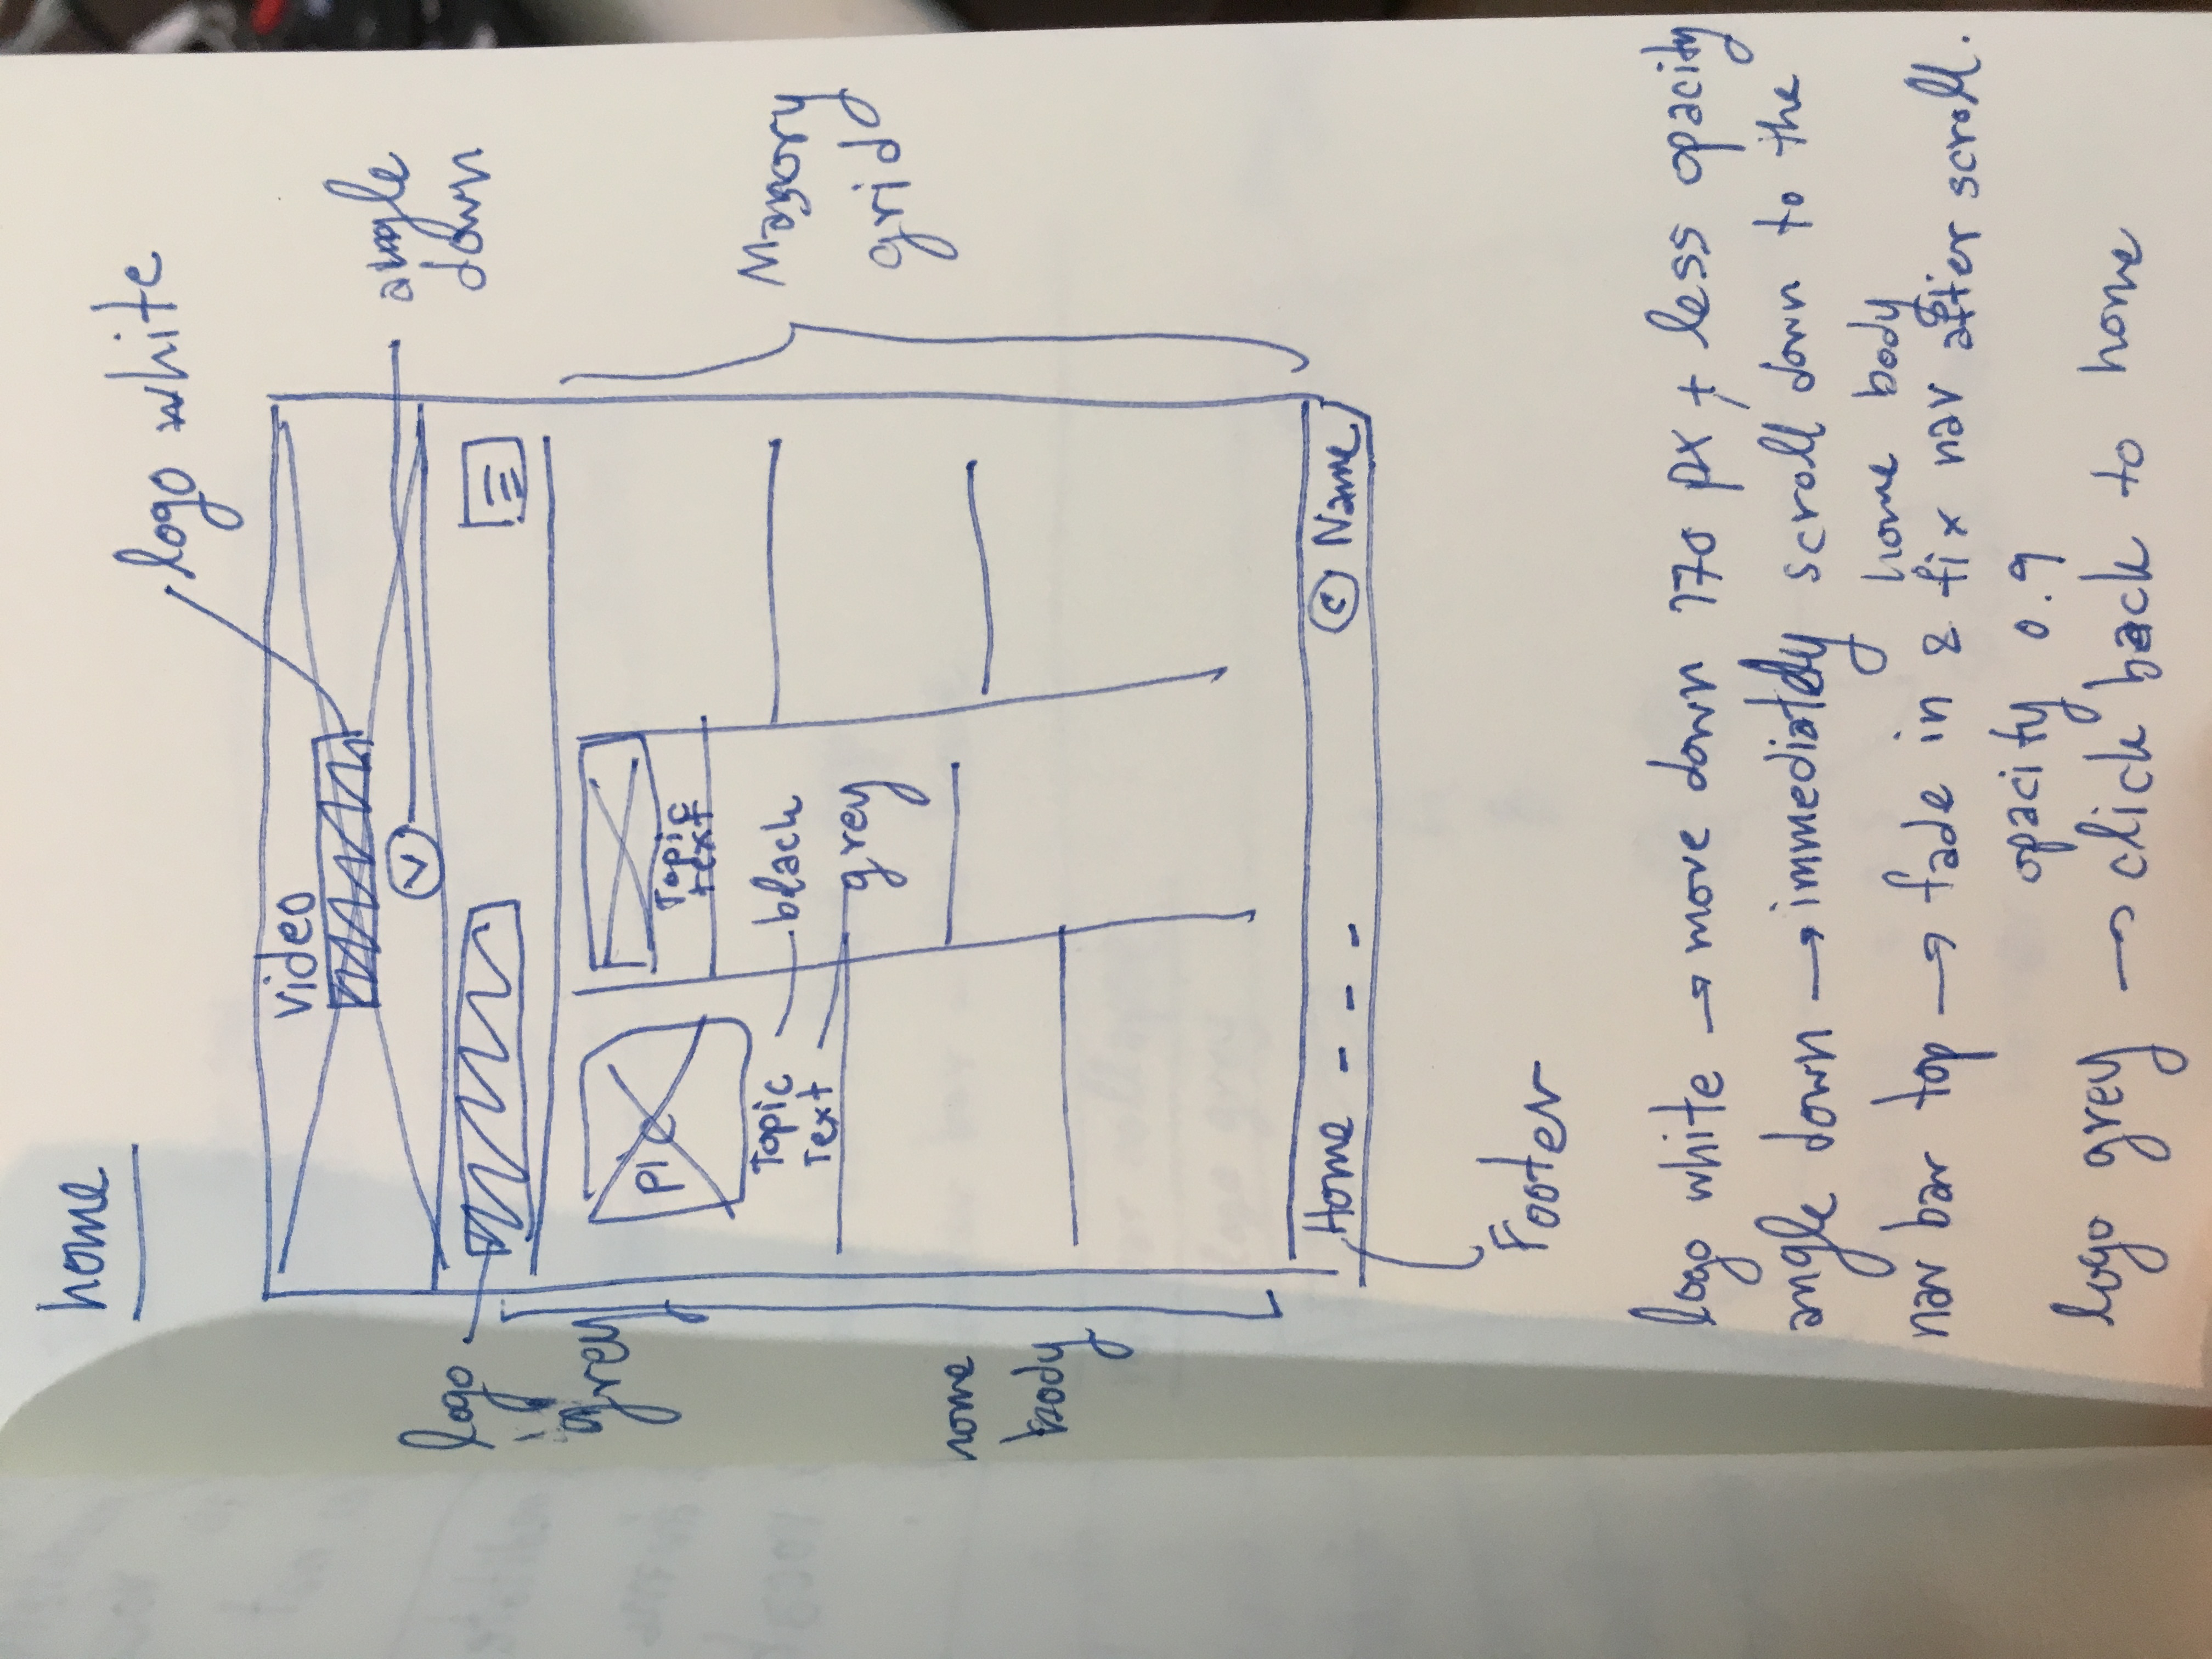 home
logo white
video
angle
down
logo
grey
pic
Topic
text
Topic
Text
black
grey
Masory
grid
home
body
Home - - -
© Name
Footer
logo white → move down 170 px + less opacity
angle down → immediately scroll down to the
home body
nav bar top → fade in & fix nav after scroll.
opacity 0.9
logo grey → click back to home